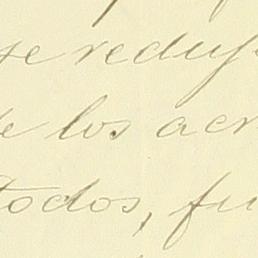 se reduj
e los acr
todos, fu